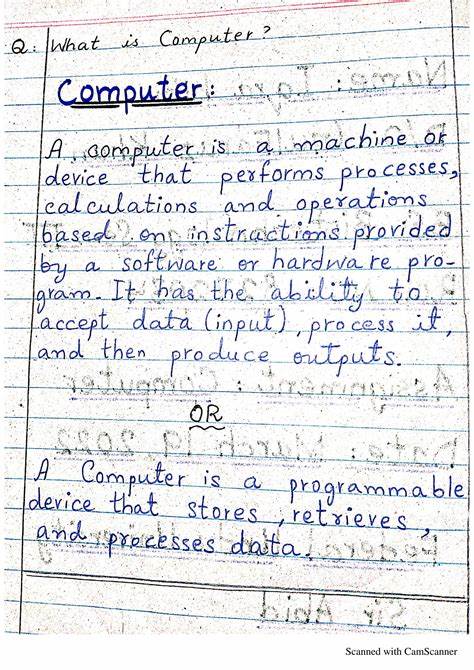 Q: What is Computer?
Computer:
A computer is a machine or
device that performs processes,
calculations and operations
based on instructions provided
by a software or hardware pro-
gram. It has the ability to
accept data (input), process it,
and then produce outputs.
OR
A Computer is a programmable
device that stores, retrieves,
and processes data.
Scanned with CamScanner